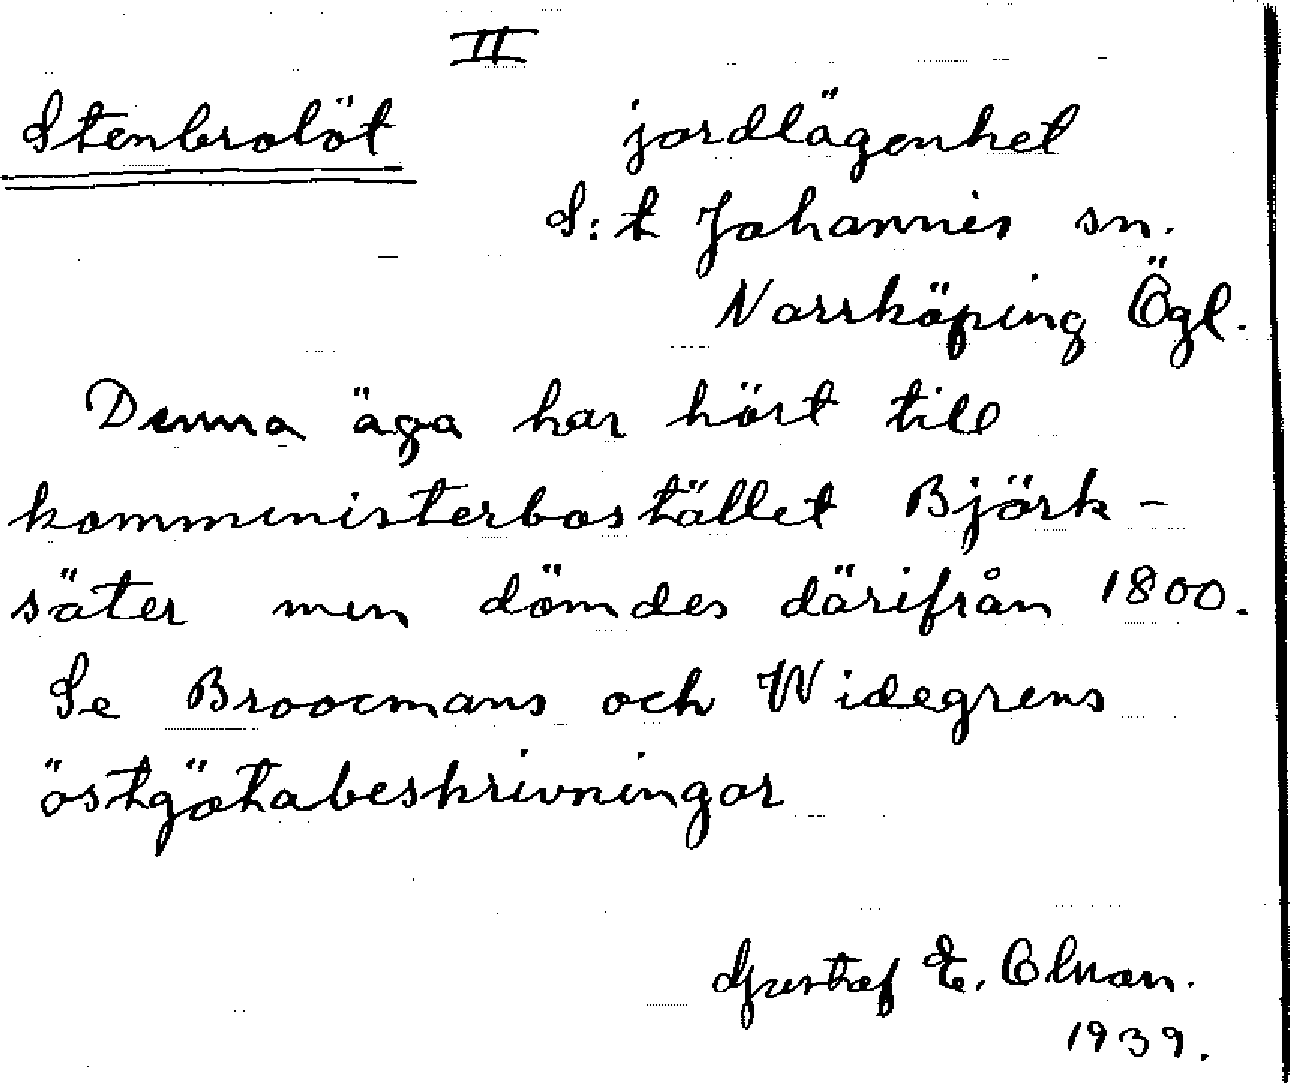 II
Stenbrolöt jordlägenhet
S:t Johannis sn.
Norrköping Ögl.
Denna äga har hört till
komministerbostället Björk-
säter men dömdes därifrån 1800.
Se Broocmans och Widegrens
östgötabeskrivningar
Gustaf E.
1939.